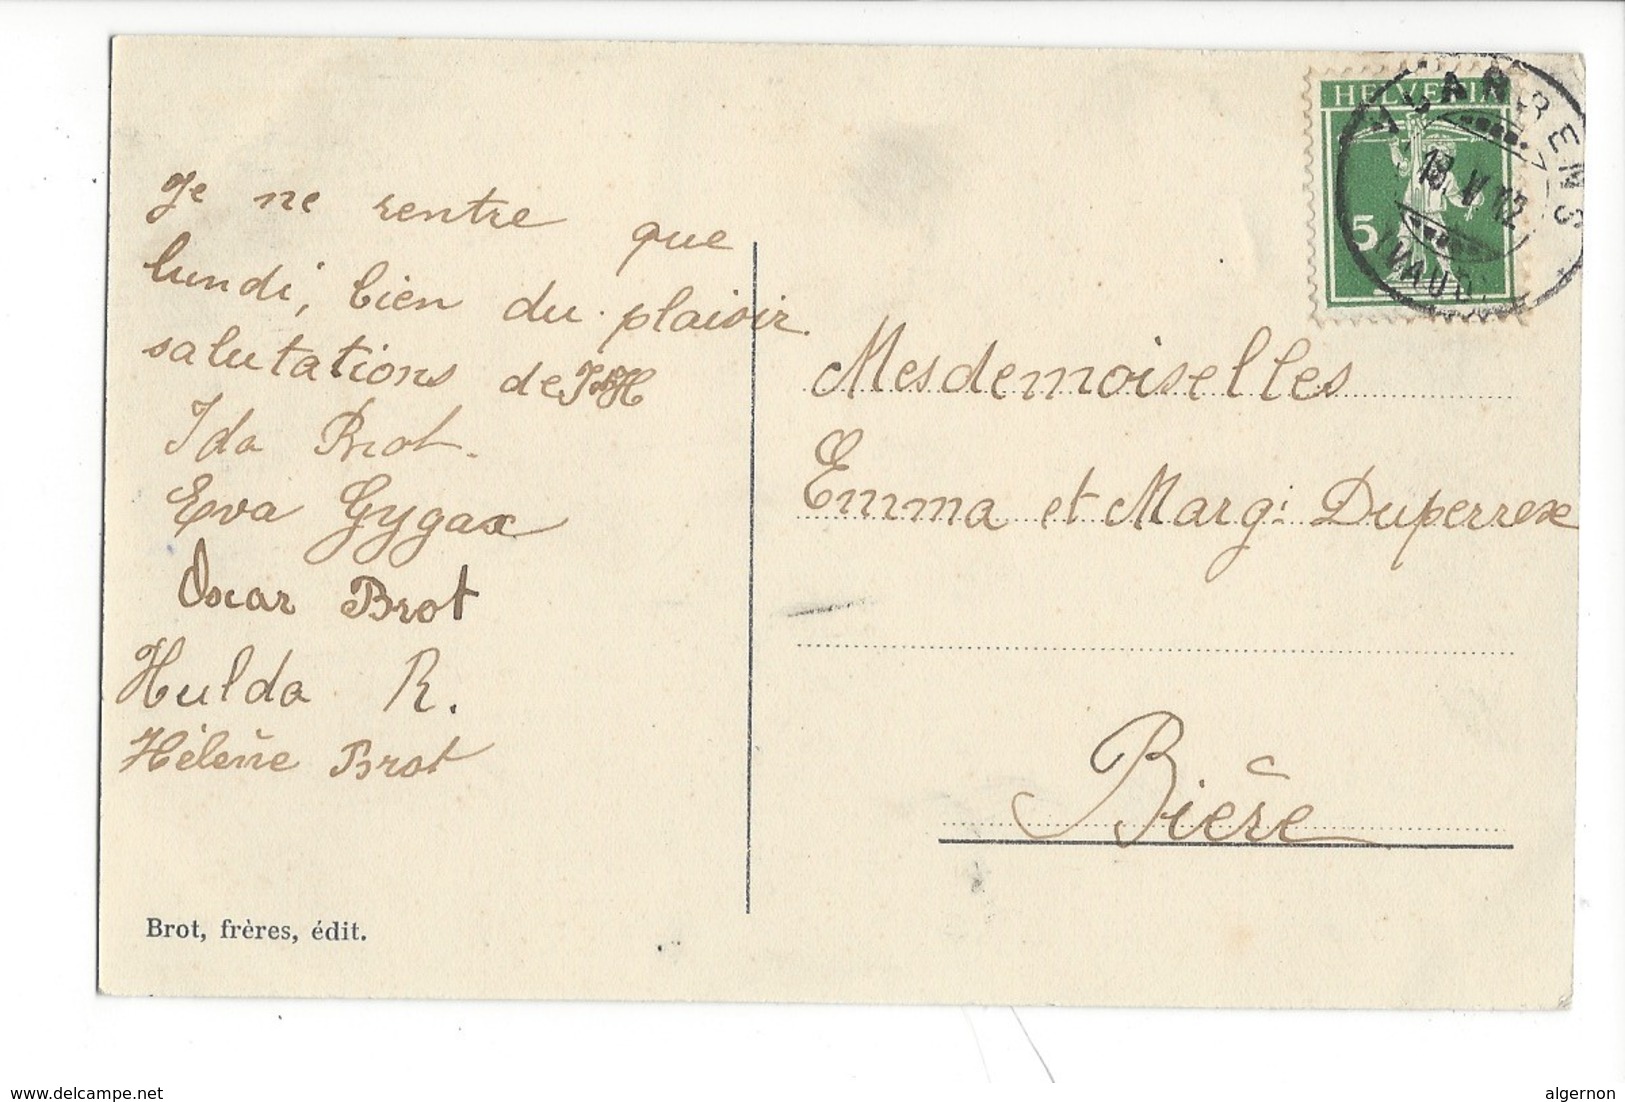 Je ne rentre que
lundi, bien du plaisir.
salutations de
Ida Brot.
Eva Gygax
Oscar Brot
Hulda R.
Hélène Brot
Brot, frères, édit.
HELVETIA
5
18 V 12
(VAUD)
Mesdemoiselles
Emma et Marg: Duperrex
Bière
www.delcampe.net
algernon